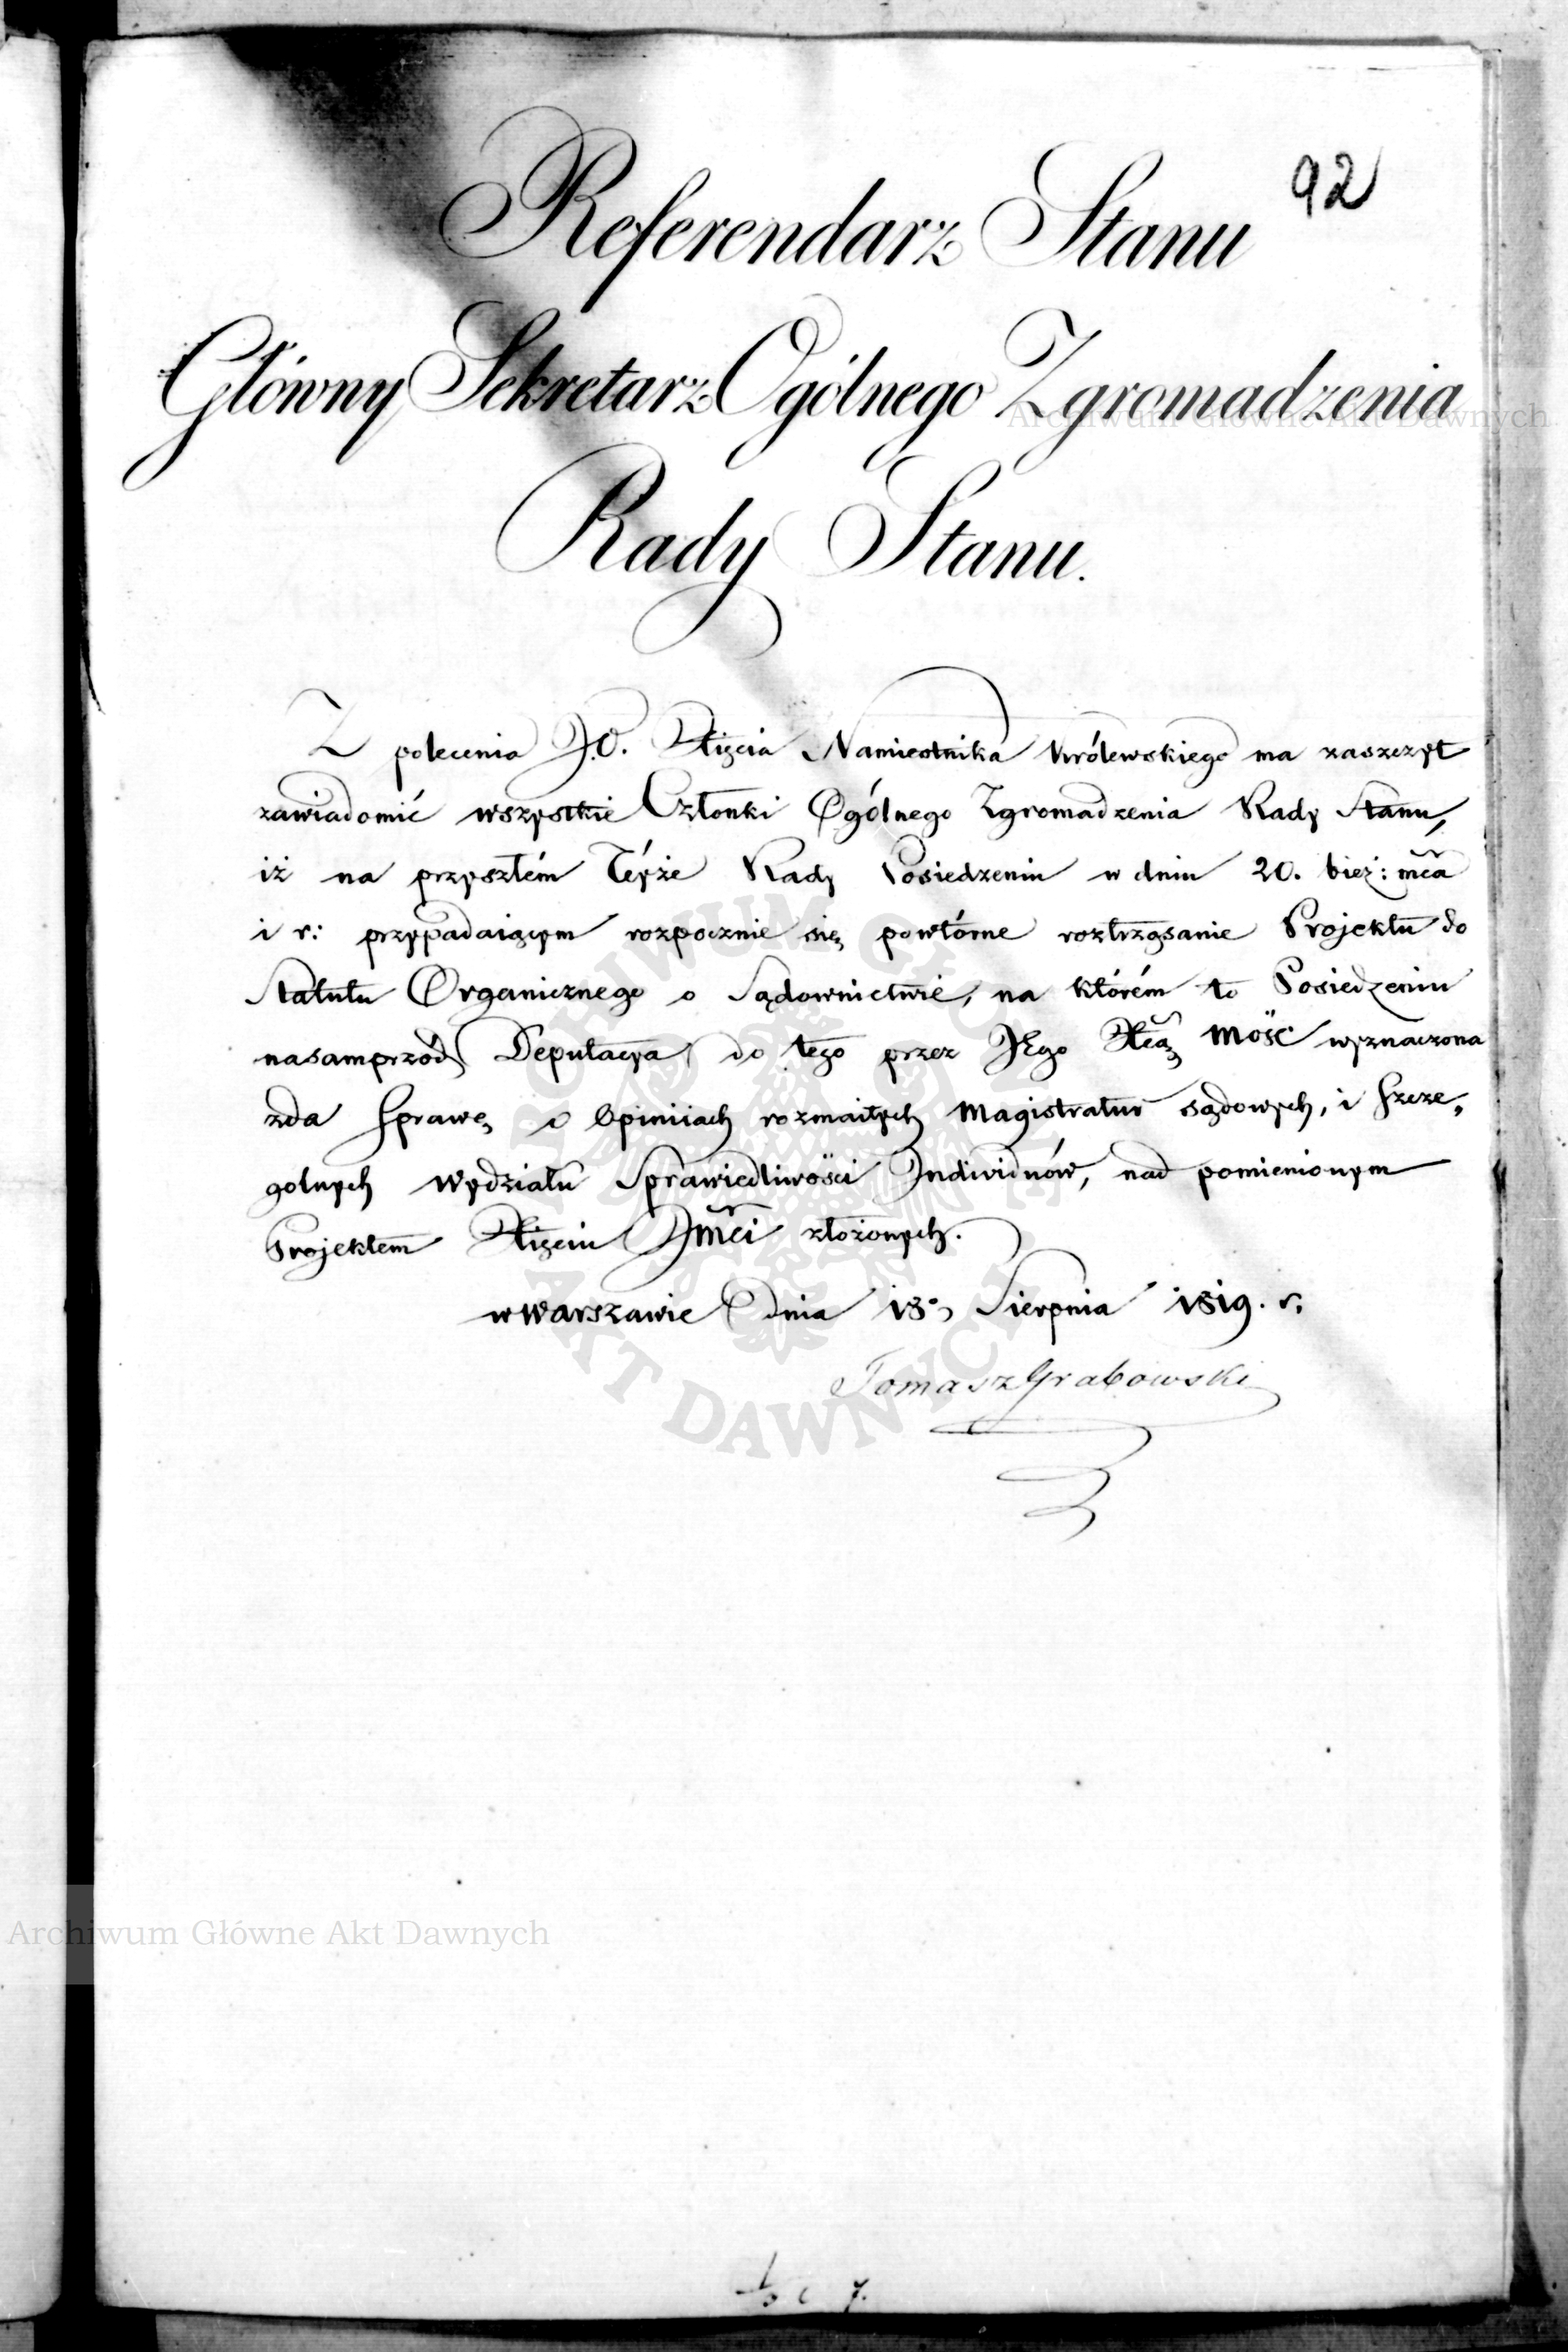 92
Referendarz Stanu
Główny Sekretarz Ogólnego Zgromadzenia
Rady Stanu.
Z polecenia J.O. Xięcia Namiestnika Królewskiego ma zaszczyt
zawiadomić wszystkie Członki Ogólnego Zgromadzenia Rady Stanu,
iż na przyszłém Téyże Rady Posiedzeniu w dniu 20. bież: mca
i r: przypadaiącym rozpocznie się powtórne roztrząsanie Projektu do
Statutu Organicznego o Sądownictwie, na którém to Posiedzeniu
nasamprzód Deputacya do tego przez JEgo Xcą Mość wyznaczona
zda sprawę o Opiniiach rozmaitych Magistratur sądowych, i szcze„
golnych Wydziału Sprawiedliwości Individuów, nad pomienionym
Projektem Xięciu Jmci złożonych.
w Warszawie Dnia 18. Sierpnia 1819. r.
Tomasz Grabowski
Archiwum Główne Akt Dawnych
ARCHIWUM GŁÓWNE
AKT DAWNYCH
Archiwum Główne Akt Dawnych